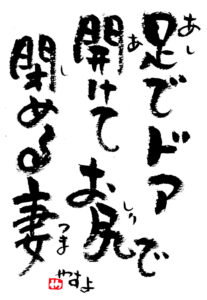 足でドア
開けてお尻で
閉める妻
あし
あ
しり
し
つま
やすよ